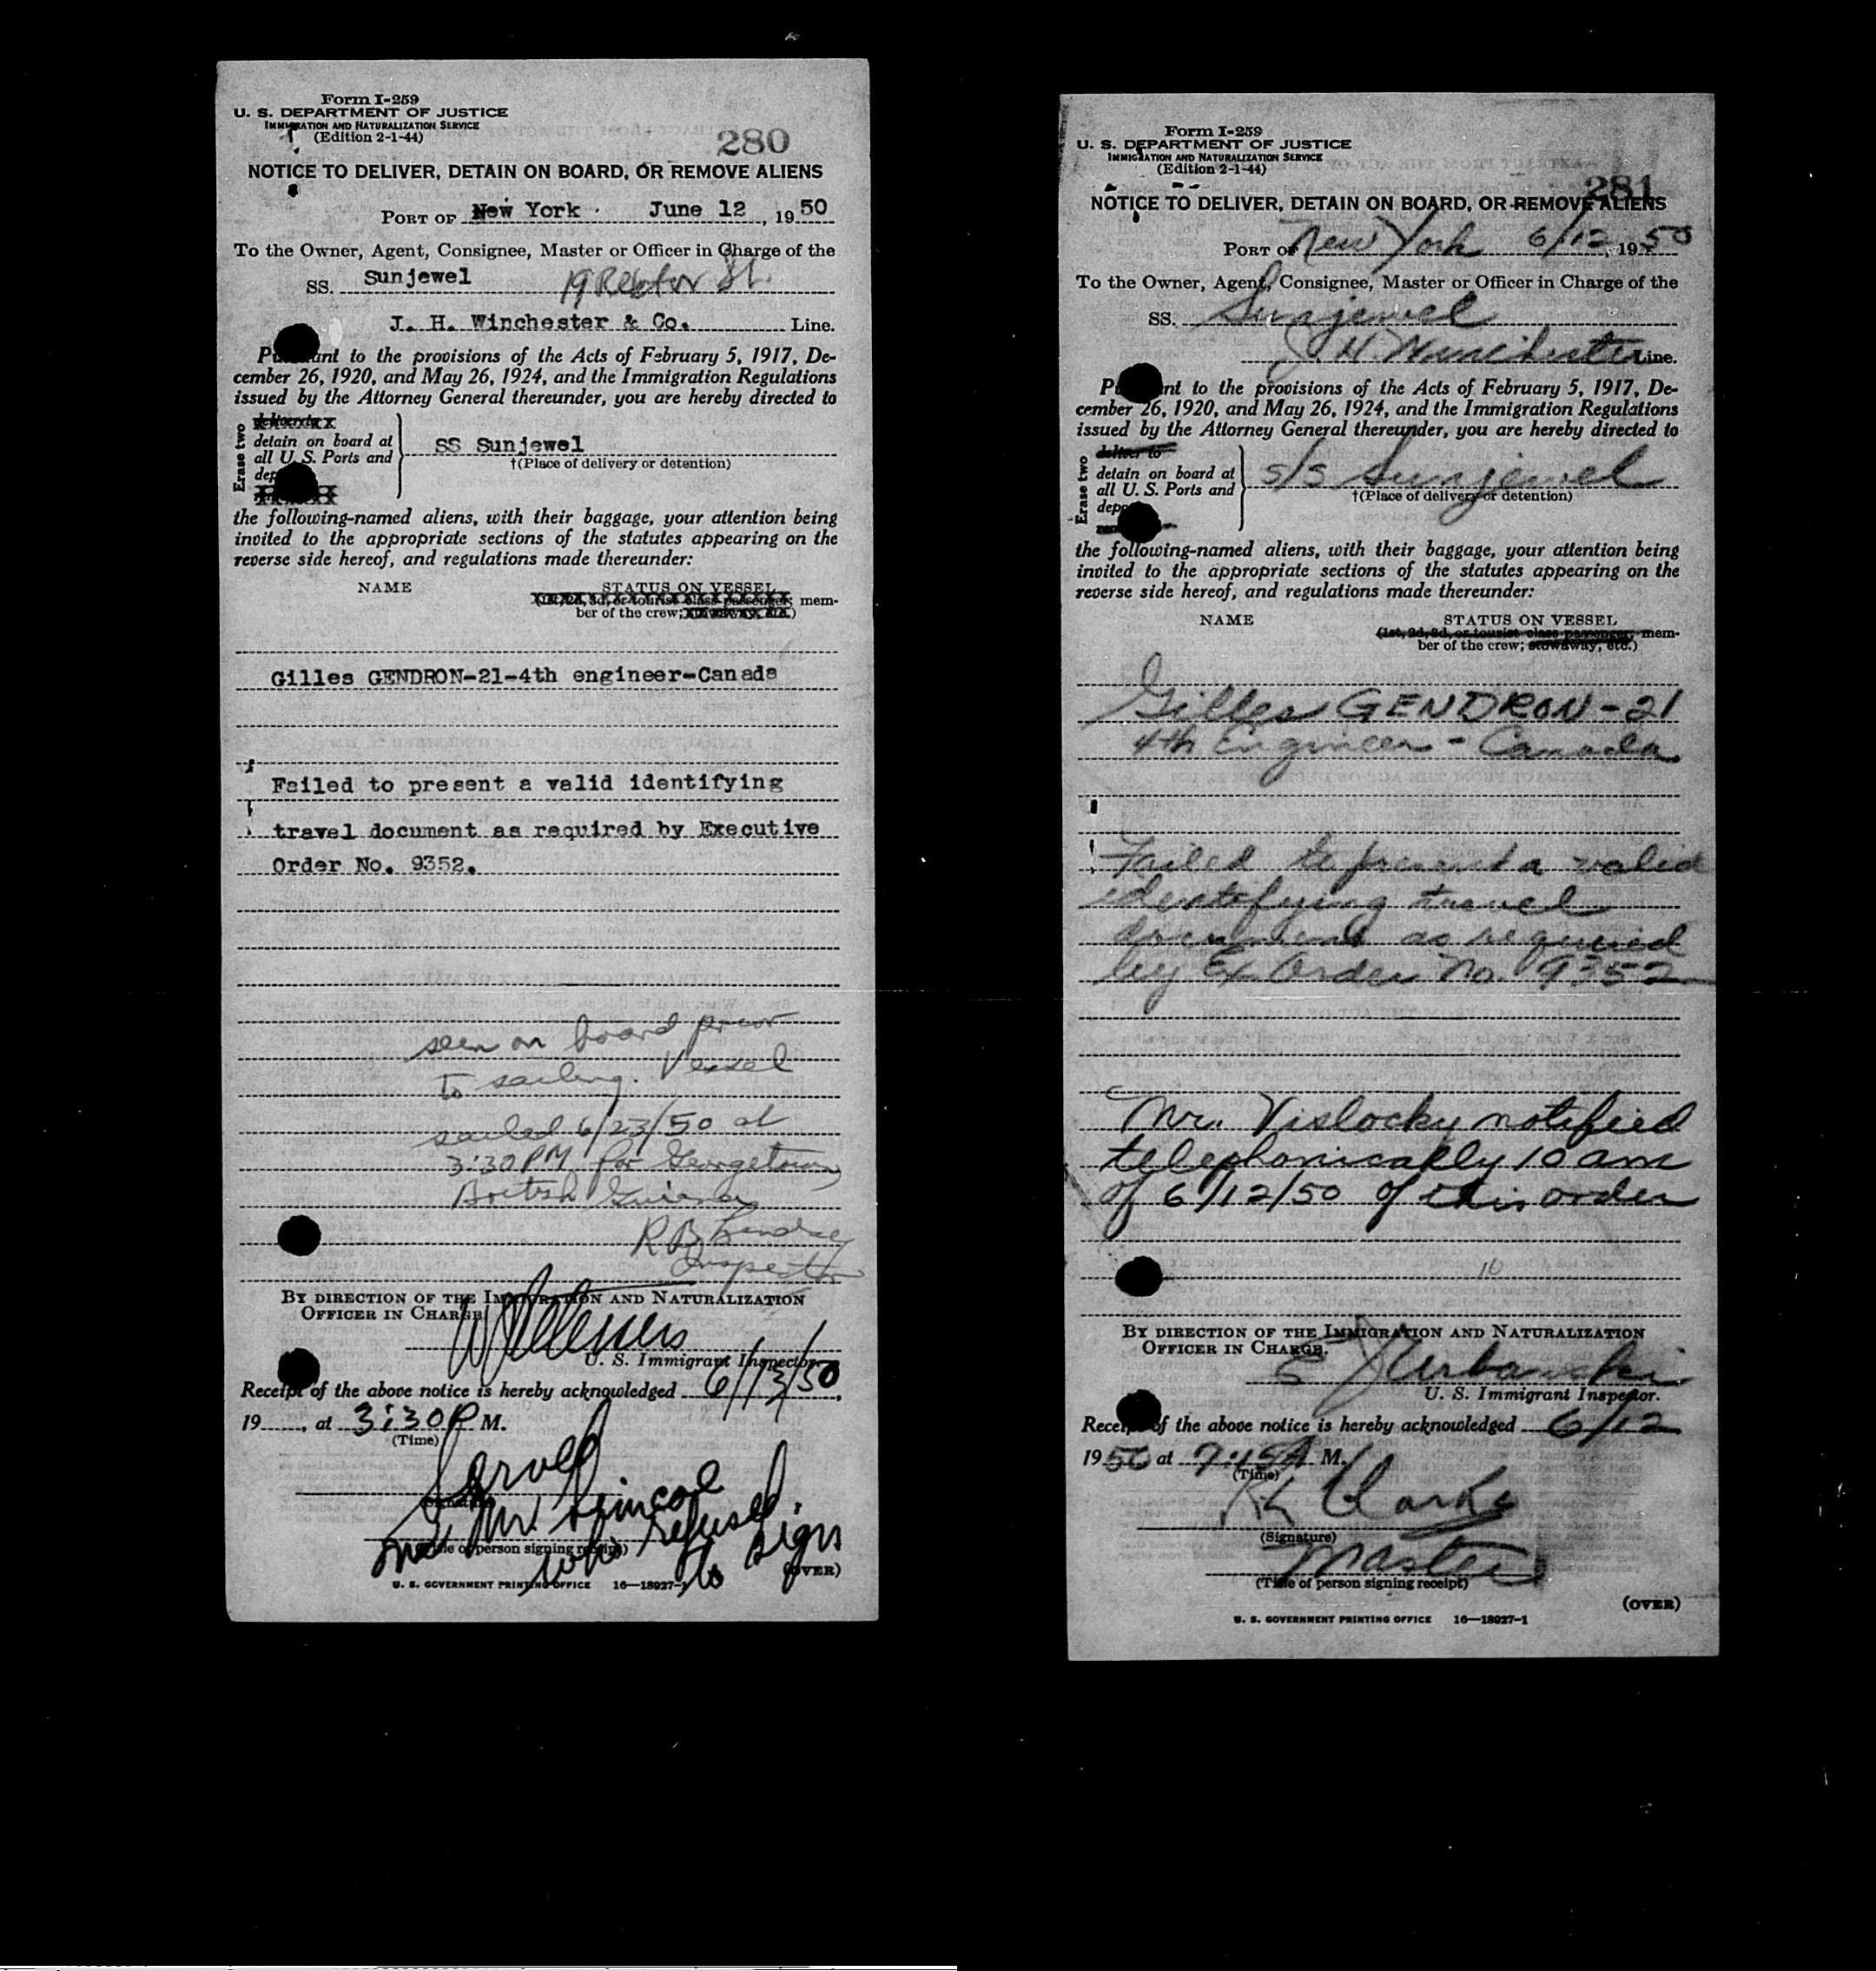 Form I-259
U. S. DEPARTMENT OF JUSTICE
IMMIGRATION AND NATURALIZATION SERVICE
(Edition 2-1-44)
280
NOTICE TO DELIVER, DETAIN ON BOARD, OR REMOVE ALIENS
PORT OF New York June 12, 1950
To the Owner, Agent, Consignee, Master or Officer in Charge of the
SS. Sunjewel 19 Rector St.
J. H. Winchester & Co. Line.
Pursuant to the provisions of the Acts of February 5, 1917, De-
cember 26, 1920, and May 26, 1924, and the Immigration Regulations
issued by the Attorney General thereunder, you are hereby directed to
Erase two
deliver to
detain on board at
all U. S. Ports and
SS Sunjewel
†(Place of delivery or detention)
the following-named aliens, with their baggage, your attention being
invited to the appropriate sections of the statutes appearing on the
reverse side hereof, and regulations made thereunder:
NAME STATUS ON VESSEL
(1st, 2d, 3d, or tourist class passenger; mem-
ber of the crew; stowaway, etc.)
Gilles GENDRON-21-4th engineer-Canada
Failed to present a valid identifying
travel document as required by Executive
Order No. 9352.
seen on board prior
to sailing. Vessel
sailed 6/23/50 at
3:30 PM for Georgetown
British Guiana
R B Lindsey
Inspector
BY DIRECTION OF THE IMMIGRATION AND NATURALIZATION
OFFICER IN CHARGE
U. S. Immigrant Inspector
Receipt of the above notice is hereby acknowledged 6/13/50,
19, at 3:30 P M.
(Time)
Served
(Signature)
Mr.
who refused
(Title of person signing receipt)
to sign
(OVER)
U. S. GOVERNMENT PRINTING OFFICE 16—18027-1
Form I-259
U. S. DEPARTMENT OF JUSTICE
IMMIGRATION AND NATURALIZATION SERVICE
(Edition 2-1-44)
281
NOTICE TO DELIVER, DETAIN ON BOARD, OR REMOVE ALIENS
PORT OF New York 6/12, 1950
To the Owner, Agent, Consignee, Master or Officer in Charge of the
SS. Sunjewel
J H Winchester Line.
Pursuant to the provisions of the Acts of February 5, 1917, De-
cember 26, 1920, and May 26, 1924, and the Immigration Regulations
issued by the Attorney General thereunder, you are hereby directed to
Erase two
deliver to
detain on board at
all U. S. Ports and
S/S Sunjewel
†(Place of delivery or detention)
the following-named aliens, with their baggage, your attention being
invited to the appropriate sections of the statutes appearing on the
reverse side hereof, and regulations made thereunder:
NAME STATUS ON VESSEL
(1st, 2d, 3d, or tourist class passenger; mem-
ber of the crew; stowaway, etc.)
Gilles GENDRON - 21
4th Engineer - Canada
Failed to present a valid
identifying travel
document as required
by Ex Order No. 9352
Mr. Vislocky notified
telephonically 10 am
of 6/12/50 of this order
10
BY DIRECTION OF THE IMMIGRATION AND NATURALIZATION
OFFICER IN CHARGE.
E J Urbanski
U. S. Immigrant Inspector.
Receipt of the above notice is hereby acknowledged 6/12
1950 at 7:45 A M.
(Time)
RK Clarke
(Signature)
Master
(Title of person signing receipt)
(OVER)
U. S. GOVERNMENT PRINTING OFFICE 16—18027-1